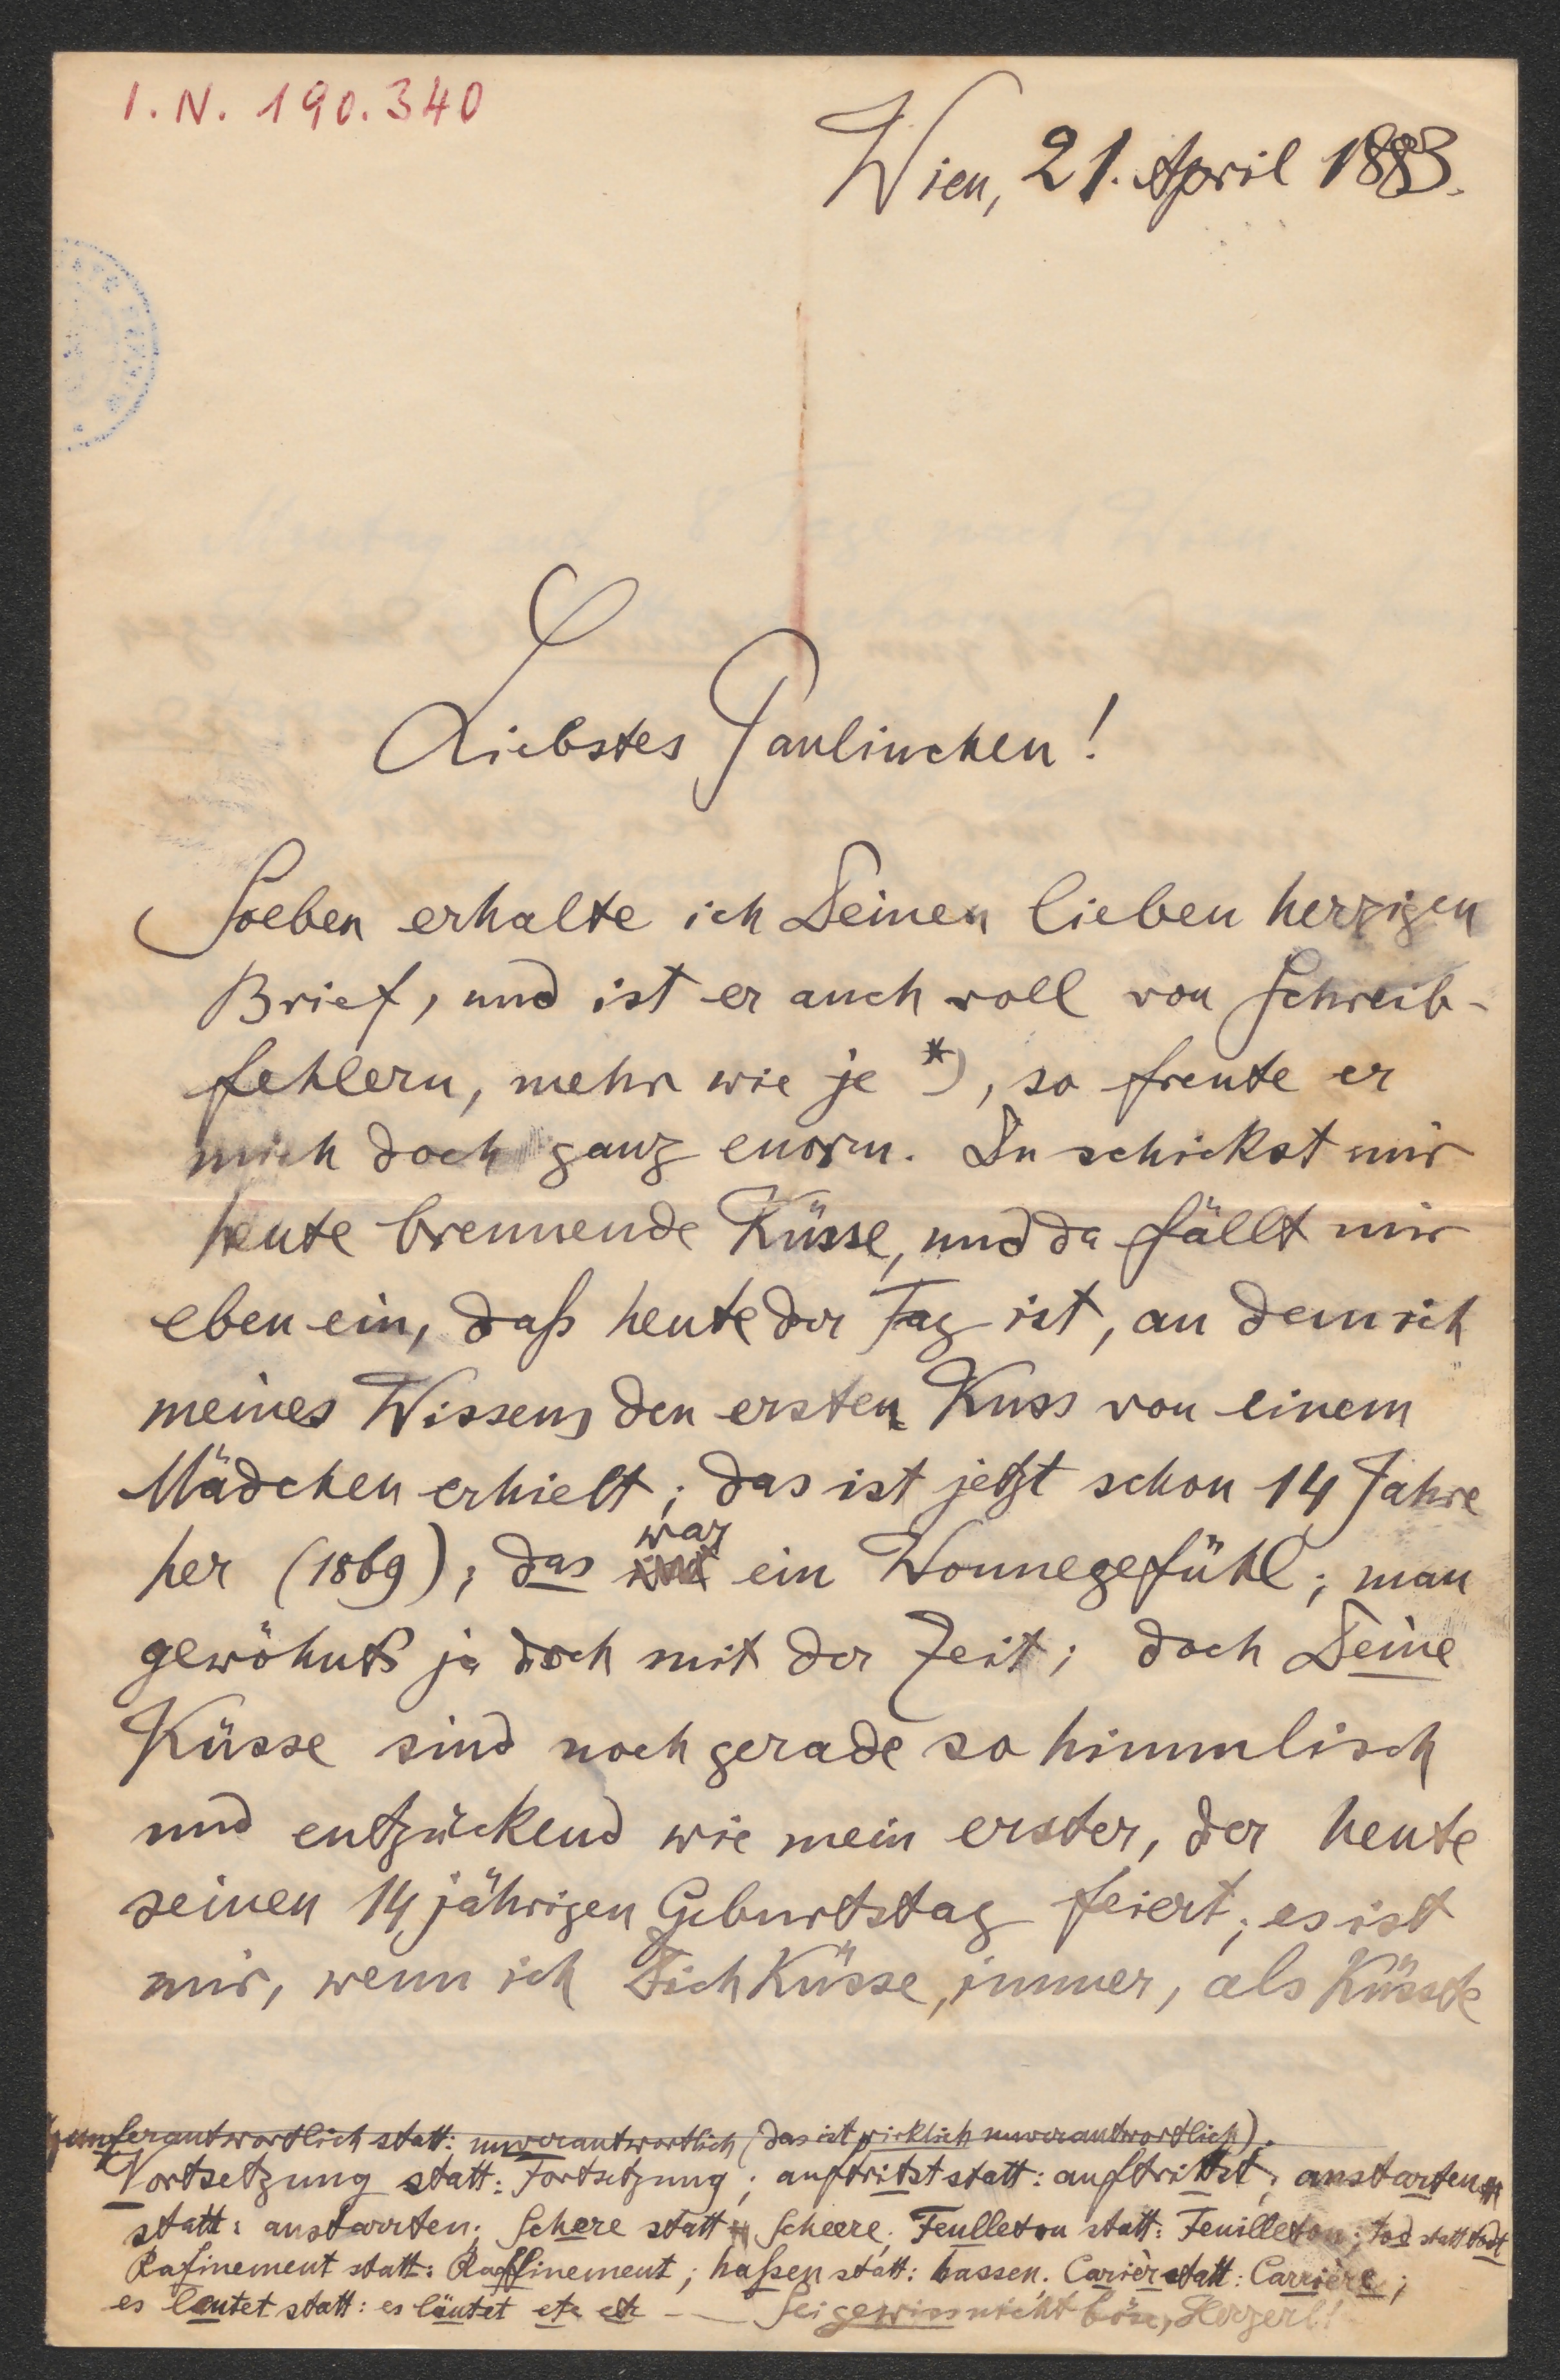 I. N. 190.340
Wien, 21. April 1883.
Liebstes Paulinchen!
Soeben erhalte ich Deinen lieben herzigen
Brief, und ist er auch voll von Schreib-
fehlern, mehr wie je *), so freute er
mich doch ganz enorm. Du schickst mir
heute brennende Küsse, und da fällt mir
eben ein, daß heute der Tag ist, an dem ich
meines Wissens den ersten Kuss von einem
Mädchen erhielt; das ist jetzt schon 14 Jahre
her (1869); das war ein Wonnegefühl; man
gewöhnts ja doch mit der Zeit; doch Deine
Küsse sind noch gerade so himmlisch
und entzückend wie mein erster, der heute
seinen 14 jährigen Geburtstag feiert; es ist
mir, wenn ich Dich Küsse, immer, als Küsste
*) unferantwortlich statt: unverantwortlich (das ist wirklich unverantwortlich).
Vortsetzung statt: Fortsetzung; auftritst statt: auftrittst; anstarten
statt: anstarrten; Schere statt Scheere; Feulleton statt: Feuilleton; tod statt todt
Rafinement statt: Raffinement; haßen statt: hassen; Carièr statt: Carrière;
es leutet statt: es läutet etc etc — Sei gewiss nicht böse, Herzerl!